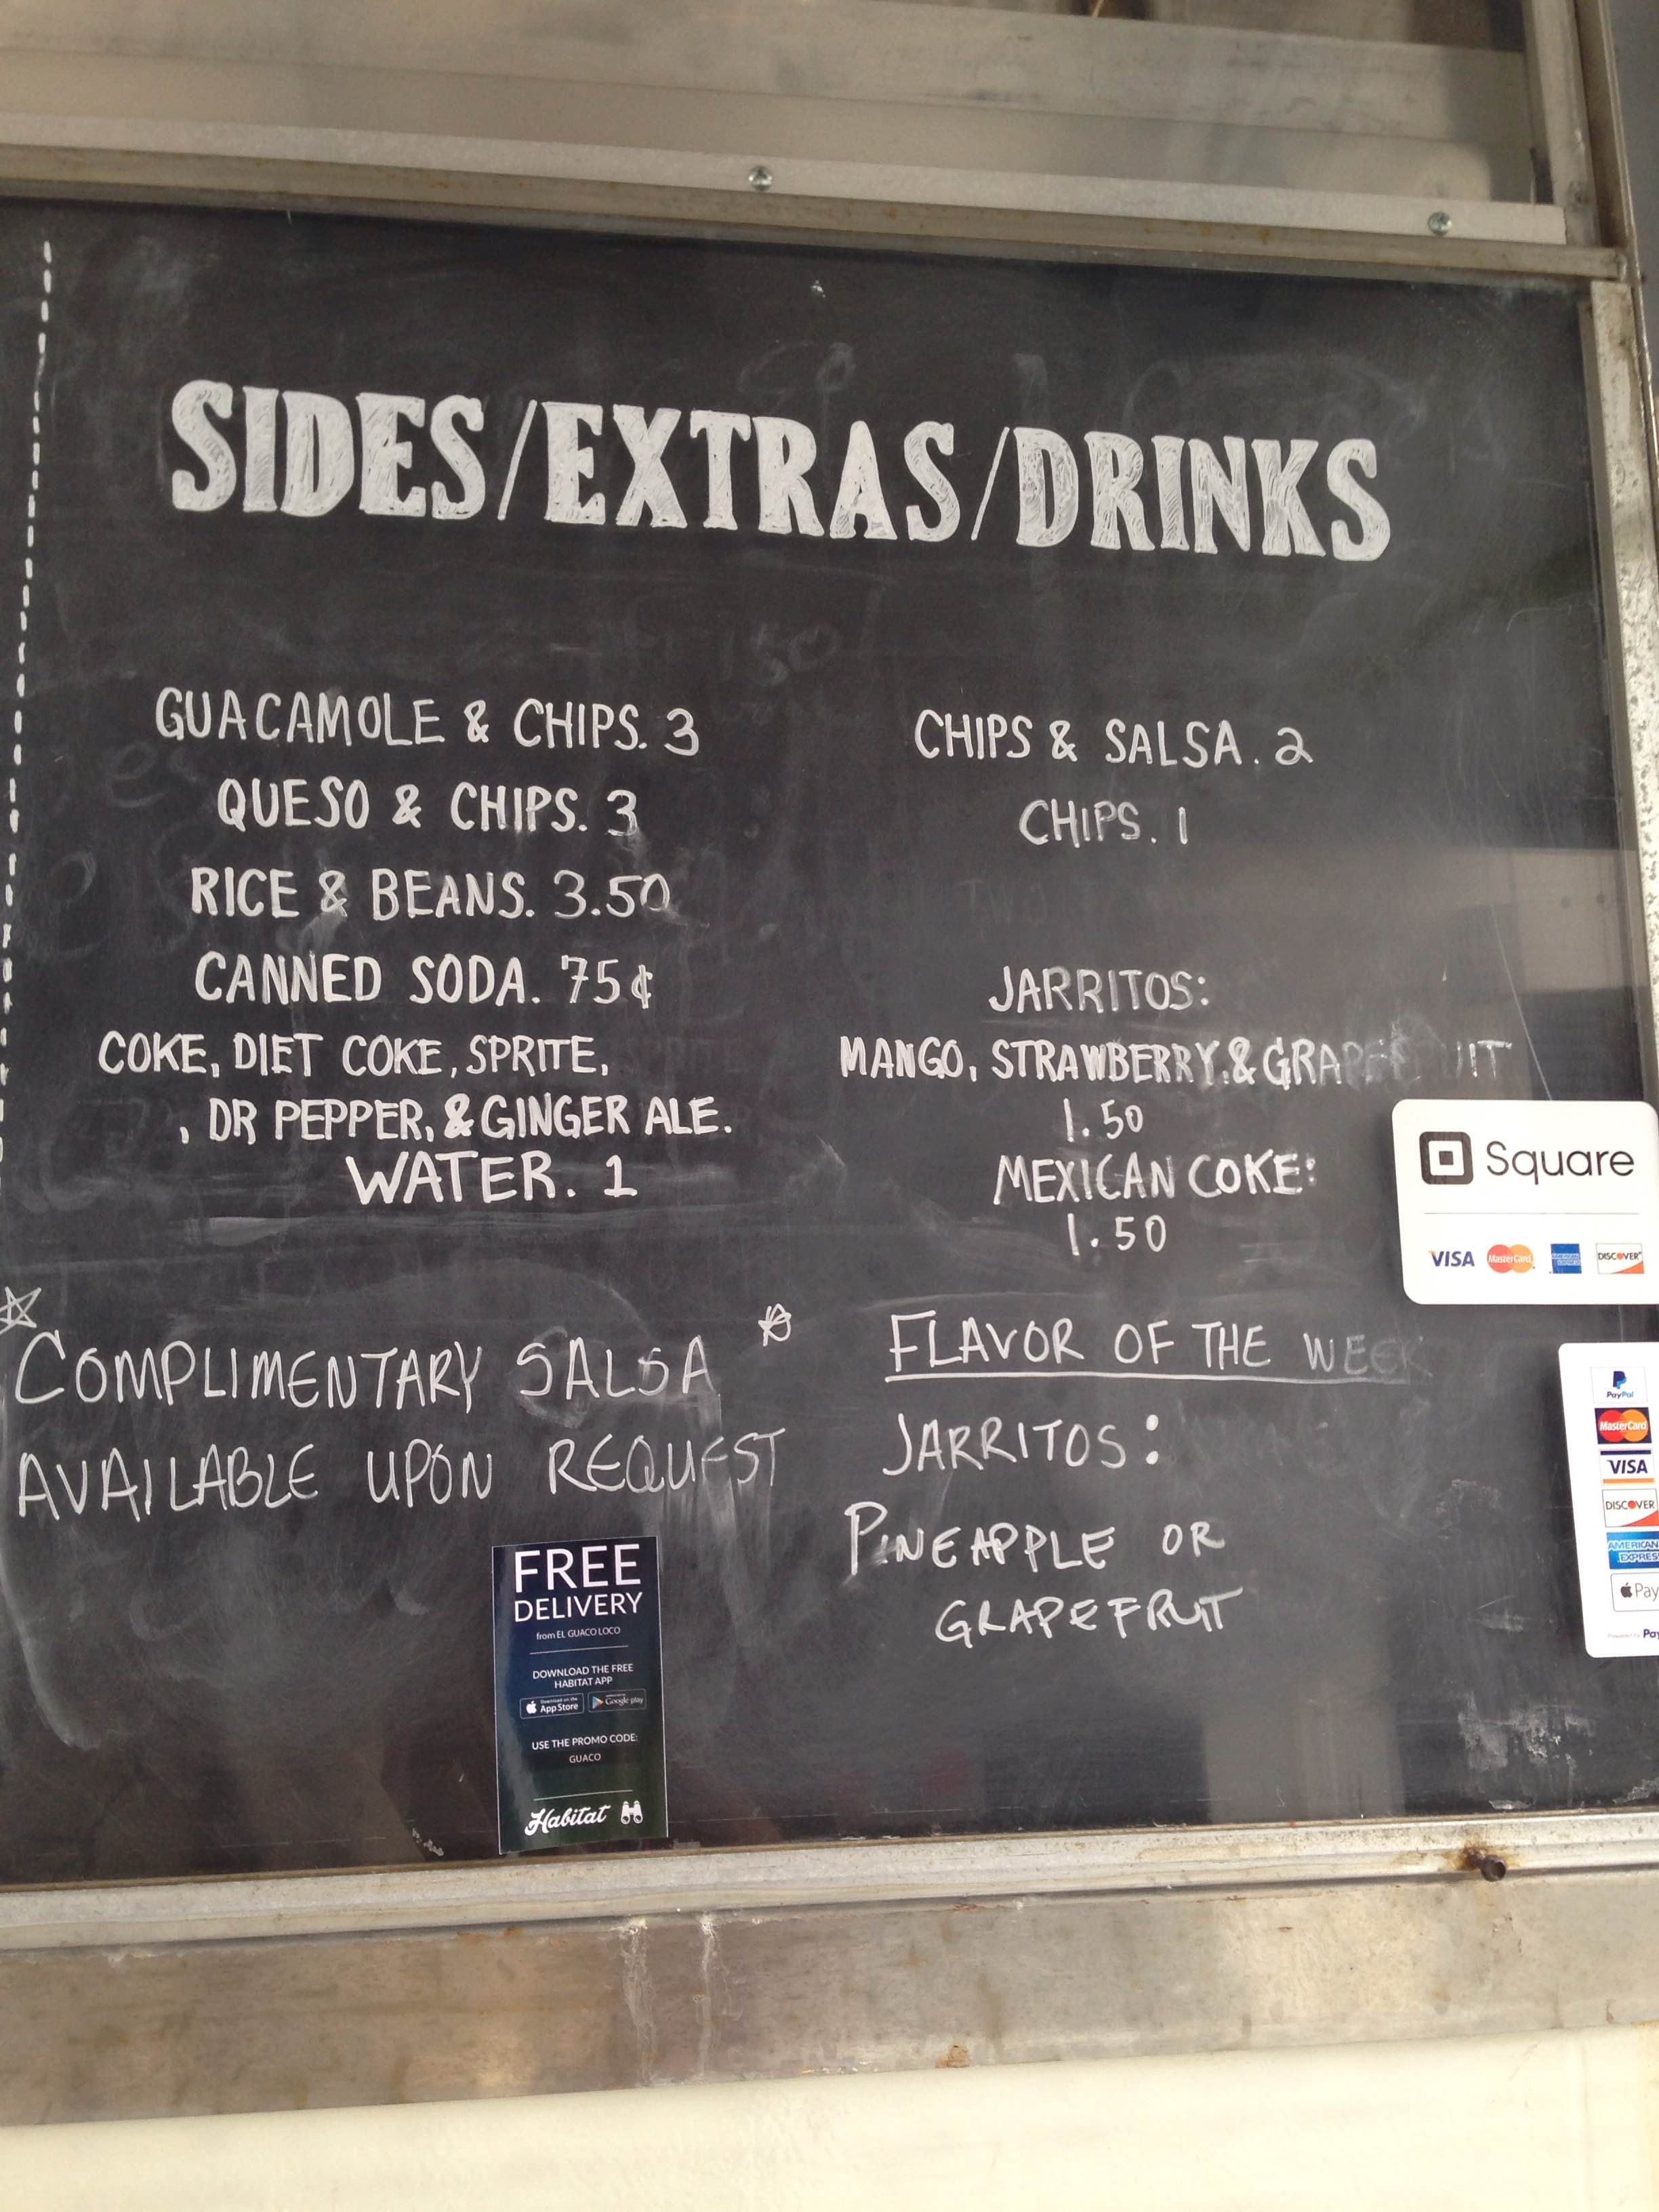 SIDES/EXTRAS/DRINKS
GUACAMOLE & CHIPS. 3
QUESO & CHIPS. 3
RICE & BEANS. 3.50
CANNED SODA. 75¢
COKE, DIET COKE, SPRITE,
, DR PEPPER, & GINGER ALE.
WATER. 1
CHIPS & SALSA. 2
CHIPS. 1
JARRITOS:
MANGO, STRAWBERRY, & GRAPEFRUIT
1.50
MEXICAN COKE:
1.50
COMPLIMENTARY SALSA
AVAILABLE UPON REQUEST
FLAVOR OF THE WEEK
JARRITOS:
PINEAPPLE OR
GRAPEFRUIT
FREE
DELIVERY
from EL GUACO LOCO
DOWNLOAD THE FREE
HABITAT APP
Download on the
App Store
Google play
USE THE PROMO CODE:
GUACO
Habitat
Square
VISA MasterCard AMERICAN EXPRESS DISCOVER
PayPal
MasterCard
VISA
DISCOVER
AMERICAN
EXPRESS
Pay
Powered by Pay